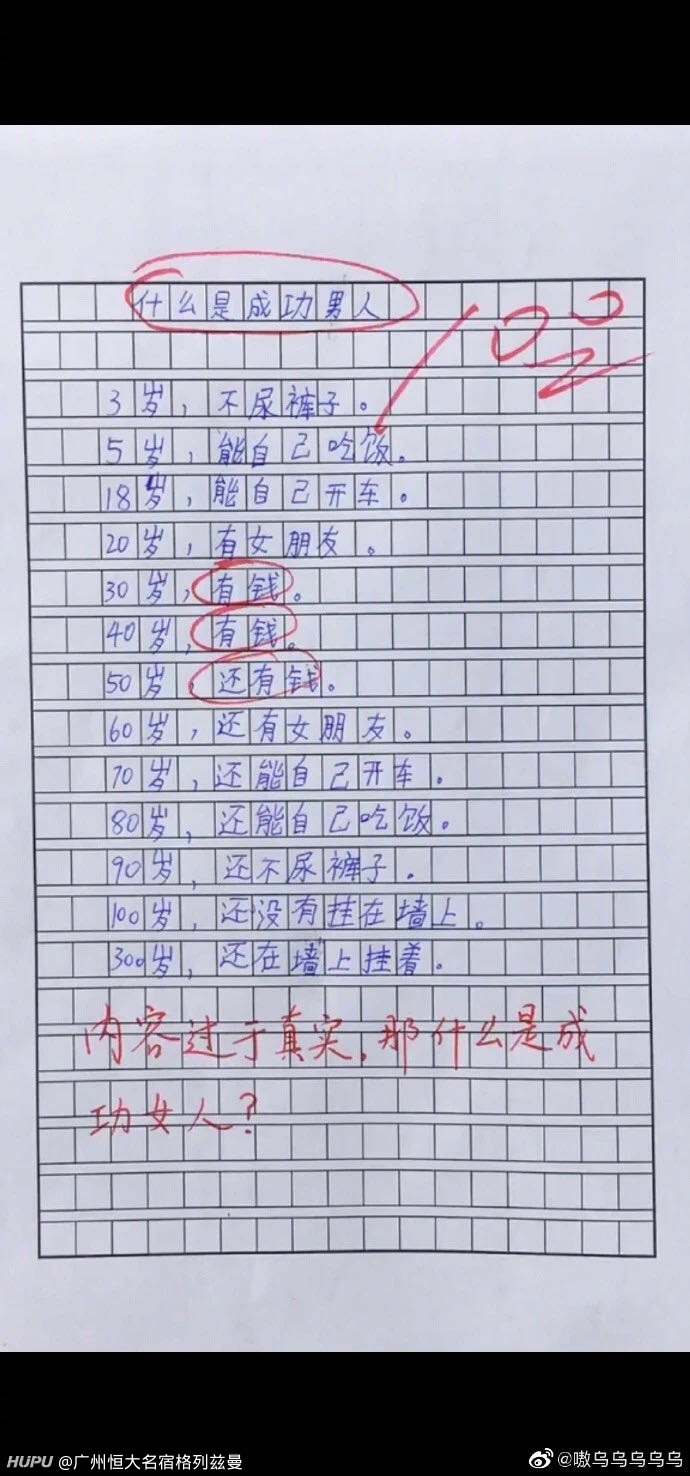 什么是成功男人
3岁，不尿裤子。
5岁，能自己吃饭。
18岁，能自己开车。
20岁，有女朋友。
30岁，有钱。
40岁，有钱。
50岁，还有钱。
60岁，还有女朋友。
70岁，还能自己开车.
80岁，还能自己吃饭。
90岁，还不尿裤子.
100岁，还没有挂在墙上。
300岁，还在墙上挂着.
内容过于真实，那什么是成
功女人？
HUPU @广州恒大名宿格列兹曼
@嗷乌乌乌乌乌